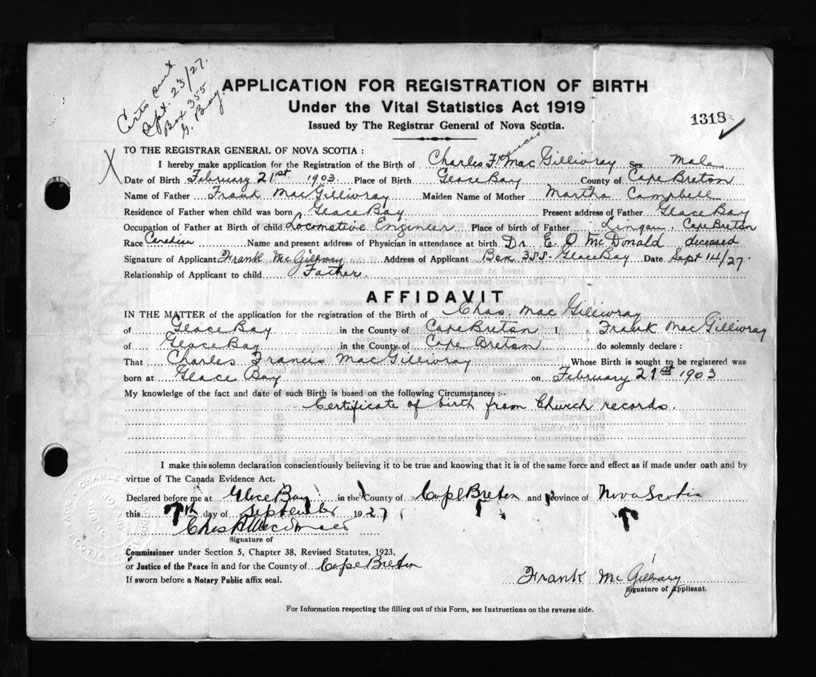 Certs sent
Sept. 23/27.
Box 355
G. Bay.
APPLICATION FOR REGISTRATION OF BIRTH
Under the Vital Statistics Act 1919
Issued by The Registrar General of Nova Scotia.
1318
X TO THE REGISTRAR GENERAL OF NOVA SCOTIA:
I hereby make application for the Registration of the Birth of Charles Francis MacGillivray Sex Male
Date of Birth February 21st 1903. Place of Birth Glace Bay County of Cape Breton
Name of Father Frank MacGillivray Maiden Name of Mother Martha Campbell
Residence of Father when child was born Glace Bay Present address of Father Glace Bay
Occupation of Father at Birth of child Locomotive Engineer Place of birth of Father Lingan, Cape Breton
Race Canadian Name and present address of Physician in attendance at birth Dr. E. O. McDonald deceased
Signature of Applicant Frank McGilvary Address of Applicant Box 355- Glace Bay Date Sept 14/27.
Relationship of Applicant to child Father.
AFFIDAVIT
IN THE MATTER of the application for the registration of the Birth of Chas. MacGillivray
of Glace Bay in the County of Cape Breton I, Frank MacGillivray
of Glace Bay in the County of Cape Breton do solemnly declare:
That Charles Francis MacGillivray Whose Birth is sought to be registered was
born at Glace Bay on February 21st 1903
My knowledge of the fact and date of such Birth is based on the following Circumstances:-
Certificate of birth from Church records.
I make this solemn declaration conscientiously believing it to be true and knowing that it is of the same force and effect as if made under oath and by
virtue of The Canada Evidence Act.
Declared before me at Glace Bay in the County of Cape Breton and Province of Nova Scotia
this th day of September 1927
Signature of
Commissioner under Section 5, Chapter 38, Revised Statutes, 1923,
or Justice of the Peace in and for the County of Cape Breton
If sworn before a Notary Public affix seal.
Frank McGilvary
Signature of Applicant.
For Information respecting the filling out of this Form, see Instructions on the reverse side.